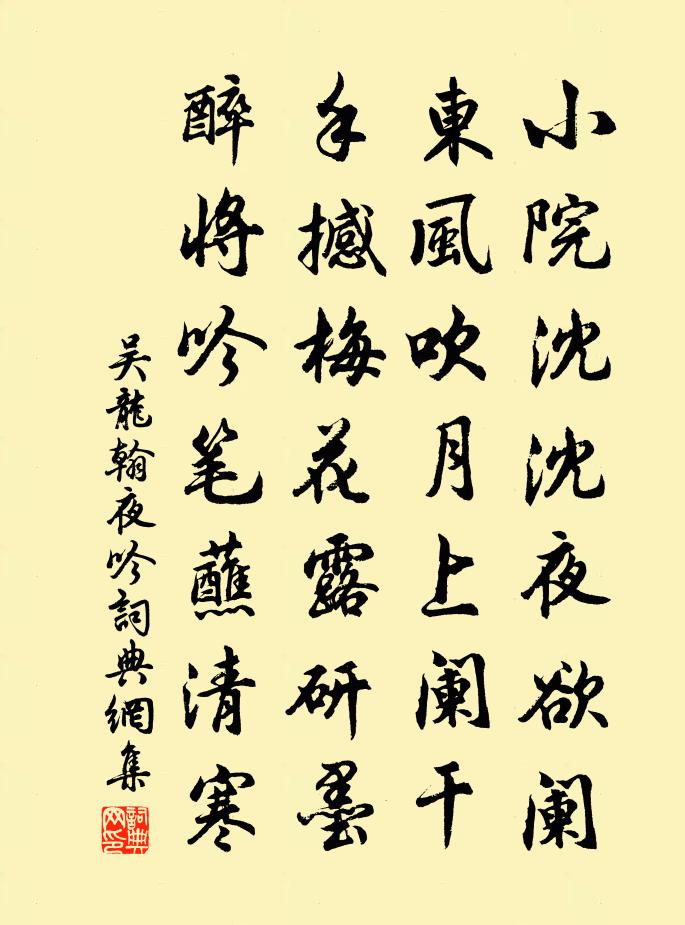 小院沈沈夜欲阑
東風吹月上阑干
手撼梅花露研墨
醉将吟笔蘸清寒
吴龍翰夜吟詞典網集
詞典
网印